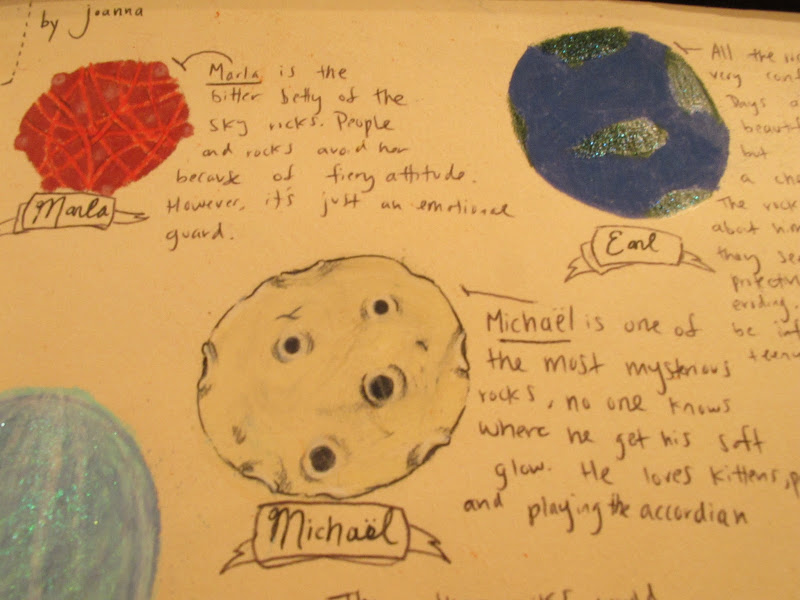 by joanna
Marla is the
bitter betty of the
sky rocks. People
and rocks avoid her
because of fiery attitude.
However, it's just an emotional
guard.
Marla
All the
very
Days
beautif
but
a
The rock
about him
they
eroding.
be
Earl
Michaël is one of
the most mysterious
rocks, no one knows
where he get his soft
glow. He loves kittens, p
and playing the accordian
Michaël